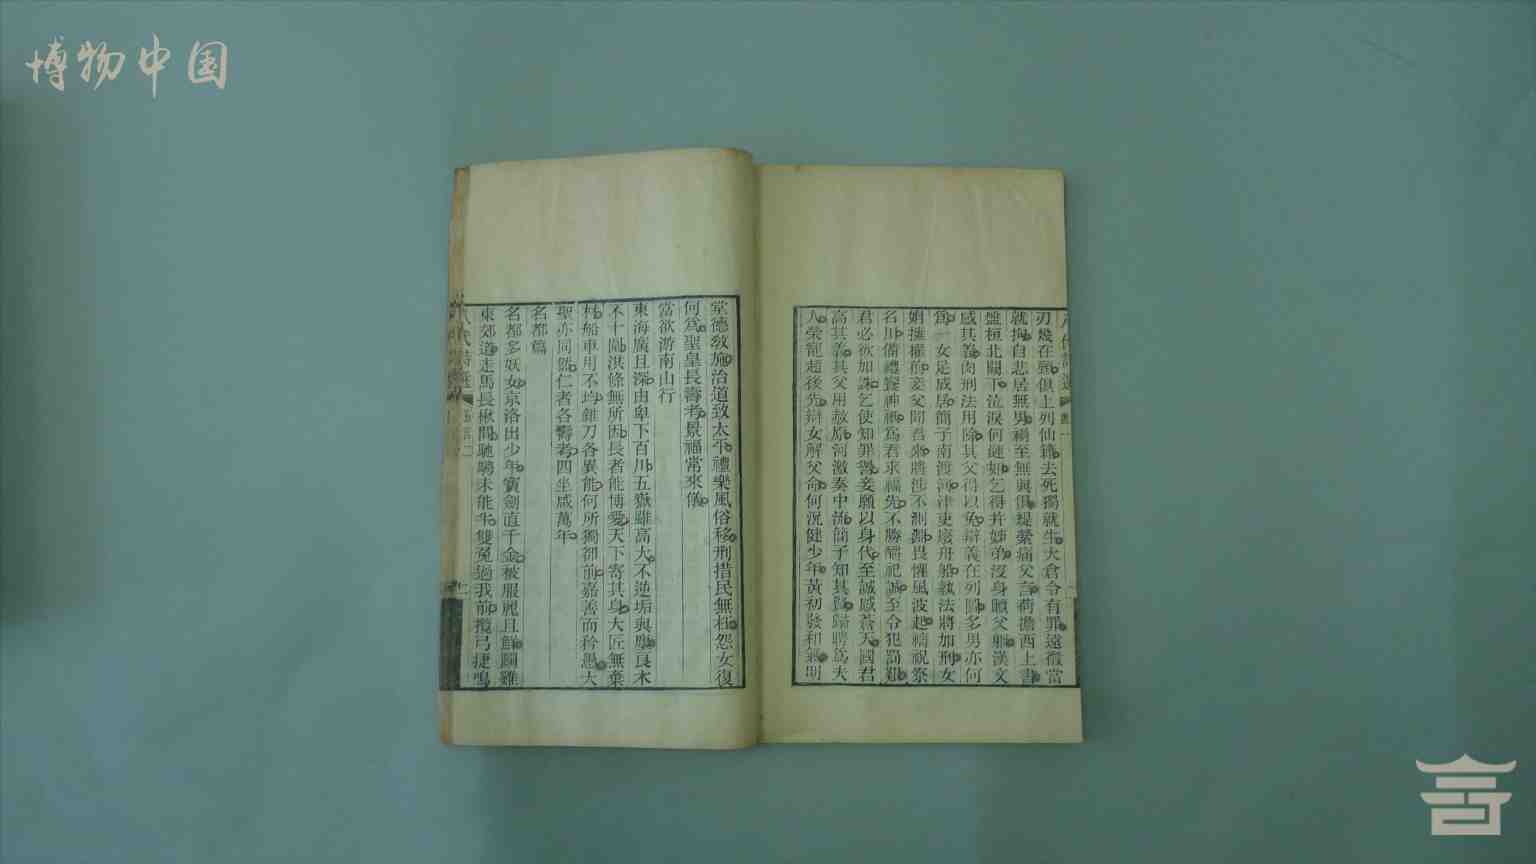 博物中国
八代詩選
刃幾在頸俱上列仙籍去死獨就生大倉令有罪遠徵當
就拘自悲居無男禍至無與俱緹縈痛父言荷擔西上書
盤桓北闕下泣淚何漣如乞得并姊弟沒身贖父軀漢文
感其義肉刑法用除其父得以免辯義在列圖多男亦何
爲一女足成居簡子南渡河津吏廢舟船執法將加刑女
娟擁櫂前妾父聞君來將涉不測淵畏懼風波起禱祝祭
名川備禮饗神祇爲君求福先不勝釂祀誠至令犯罰艱
君必欲加誅乞使知罪諐妾願以身代至誠感蒼天國君
高其義其父用赦原河激奏中流簡子知其賢歸聘爲夫
人榮寵超後先辯女解父命何況健少年黃初發和氣明
堂德教施治道致太平禮樂風俗移刑措民無枉怨女復
何爲聖皇長壽考景福常來儀
當欲游南山行
東海廣且深由卑下百川五嶽雖高大不逆垢與塵良木
不十圍洪條無所因長者能博愛天下寄其身大匠無棄
材船車用不均錐刀各異能何所獨卻前嘉善而矜愚大
聖亦同然仁者各壽考四坐咸萬年
名都篇
名都多妖女京洛出少年寶劍直千金被服麗且鮮鬭雞
東郊道走馬長楸間馳騁未能半雙兔過我前攬弓捷鳴
八代詩選